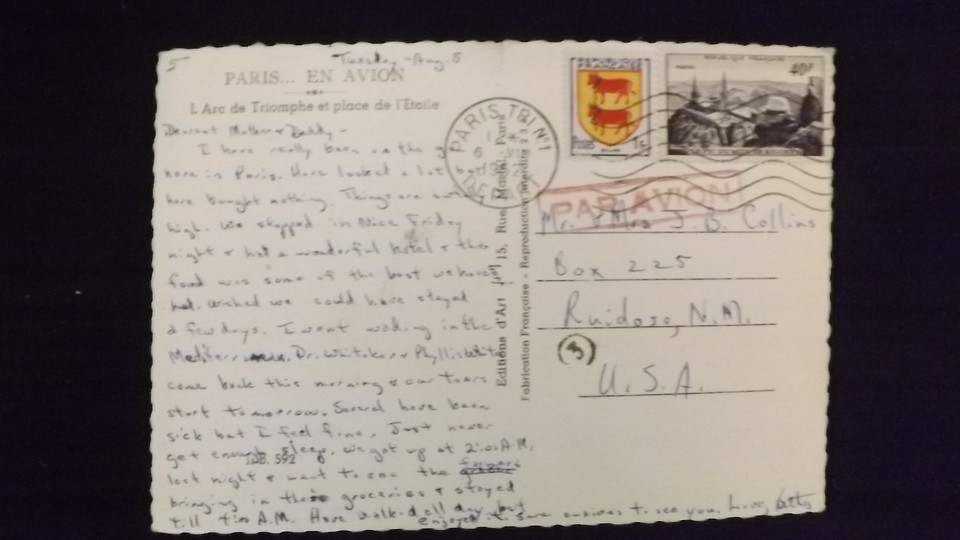 5
Tuesday - Aug. 5
PARIS... EN AVION
L'Arc de Triomphe et place de l'Étoile
Dearest Mother & Daddy -
I have really been on the go
here in Paris. Have looked a lot but
have bought nothing. Things are
high. We stopped in Nice Friday
night & had a wonderful hotel & the
food was some of the best we have
had. Wished we could have stayed
a few days. I went wading in the
Mediterranean. Dr. Whitaker & Phyllis
come back this morning & our tours
start tomorrow. Several have been
sick but I feel fine. Just never
get enough sleep. We got up at 2:00 A.M.
last night & went to see the farmers
bringing in their groceries & stayed
till A.M. Have walked all day but
enjoyed it. Sure anxious to see you. Love,
IND. 592
Editions d'Art 15, Rue Paris
Fabrication Française - Reproduction Interdite
PARIS TRI N°1
DEPART
POSTES
RÉPUBLIQUE FRANÇAISE
POSTES
40F
PAR AVION
Mr. & Mrs J. B. Collins
Box 225
Ruidoso, N.M.
3
U.S.A.